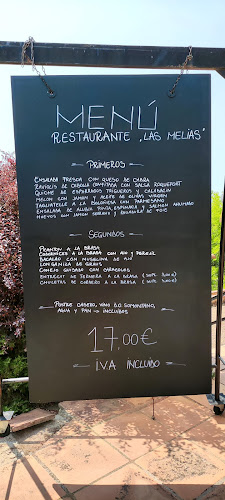 MENÚ
RESTAURANTE "LAS MELIAS"
PRIMEROS
ENSALADA FRESCA CON QUESO DE CABRA
RAVIOLIS DE CEBOLLA CONFITADA CON SALSA ROQUEFORT
QUICHE DE ESPÁRRAGOS TRIGUEROS Y CALABACÍN
MELÓN CON JAMÓN Y ACEITE DE OLIVAS VIRGEN
TAGLIATELLE A LA BOLOÑESA CON PARMESANO
ENSALADA DE ALUBIA PINTA, ESPINACA Y SALMÓN AHUMADO
HUEVOS CON JAMÓN SERRANO Y DE
SEGUNDOS
A LA BRASA
CON AJO Y PEREJIL
BACALAO CON MUSELINA DE AJO
LONGANIZA DE GRAUS
CONEJO GUISADO CON CARACOLES
ENTRECOT DE TERNERA A LA BRASA
CHULETAS DE CORDERO A LA BRASA
POSTRE CASERO, VINO D.O SOMONTANO,
AGUA Y PAN INCLUIDOS
17,00€
I.V.A INCLUIDO